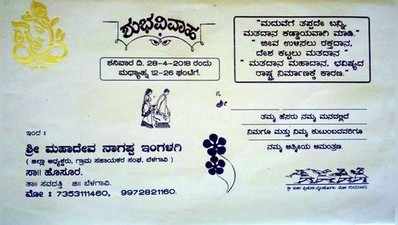 ಶುಭವಿವಾಹ
ಶನಿವಾರ ದಿ. 28-4-2018 ರಂದು
ಮಧ್ಯಾಹ್ನ 12-26 ಘಂಟೆಗೆ.
" ಮದುವೆಗೆ ತಪ್ಪದೇ ಬನ್ನಿ,
ಮತದಾನ ಕಡ್ಡಾಯವಾಗಿ ಮಾಡಿ."
" ಜೀವ ಉಳಿಸಲು ರಕ್ತದಾನ,
ದೇಶ ಕಟ್ಟಲು ಮತದಾನ "
" ಮತದಾನ ಮಹಾದಾನ, ಭವಿಷ್ಯದ
ರಾಷ್ಟ್ರ ನಿರ್ಮಾಣಕ್ಕೆ ಕಾರಣ."
ಶ್ರೀ
ತಮ್ಮ ಹೆಸರು ನಮ್ಮ ಮನದಲ್ಲಿದೆ
ನಿಮಗೂ ಮತ್ತು ನಿಮ್ಮ ಕುಟುಂಬದವರಿಗೂ
ನಮ್ಮ ಆತ್ಮೀಯ ಆಮಂತ್ರಣ.
ಇಂದ :
ಶ್ರೀ ಮಹಾದೇವ ನಾಗಪ್ಪ ಇಂಗಳಗಿ
( ಜಿಲ್ಲಾ ಅಧ್ಯಕ್ಷರು, ಗ್ರಾಮ ಸಹಾಯಕರ ಸಂಘ, ಬೆಳಗಾವಿ. )
ಸಾ॥ ಹೊಸೂರ.
ತಾ॥ ಸವದತ್ತಿ ಜಿ॥ ಬೆಳಗಾವಿ.
ಮೋ : 7353111460, 9972821160.